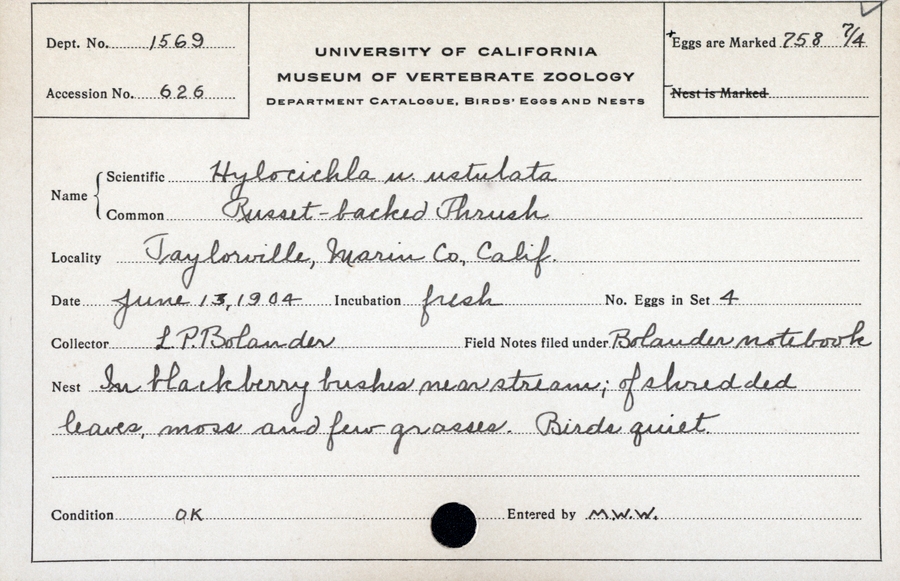 Dept. No. 1569
Accession No. 626
UNIVERSITY OF CALIFORNIA
MUSEUM OF VERTEBRATE ZOOLOGY
DEPARTMENT CATALOGUE, BIRDS' EGGS AND NESTS
+Eggs are Marked 758 7/4
Nest is Marked
Name
Scientific Hylocichla u. ustulata
Common Russet-backed Thrush
Locality Taylorville, Marin Co, Calif.
Date June 13, 1904 Incubation fresh No. Eggs in Set 4
Collector L P Bolander Field Notes filed under Bolander notebook
Nest In blackberry bushes near stream; of shredded
leaves, moss and few grasses. Birds quiet.
Condition OK Entered by M.W.W.